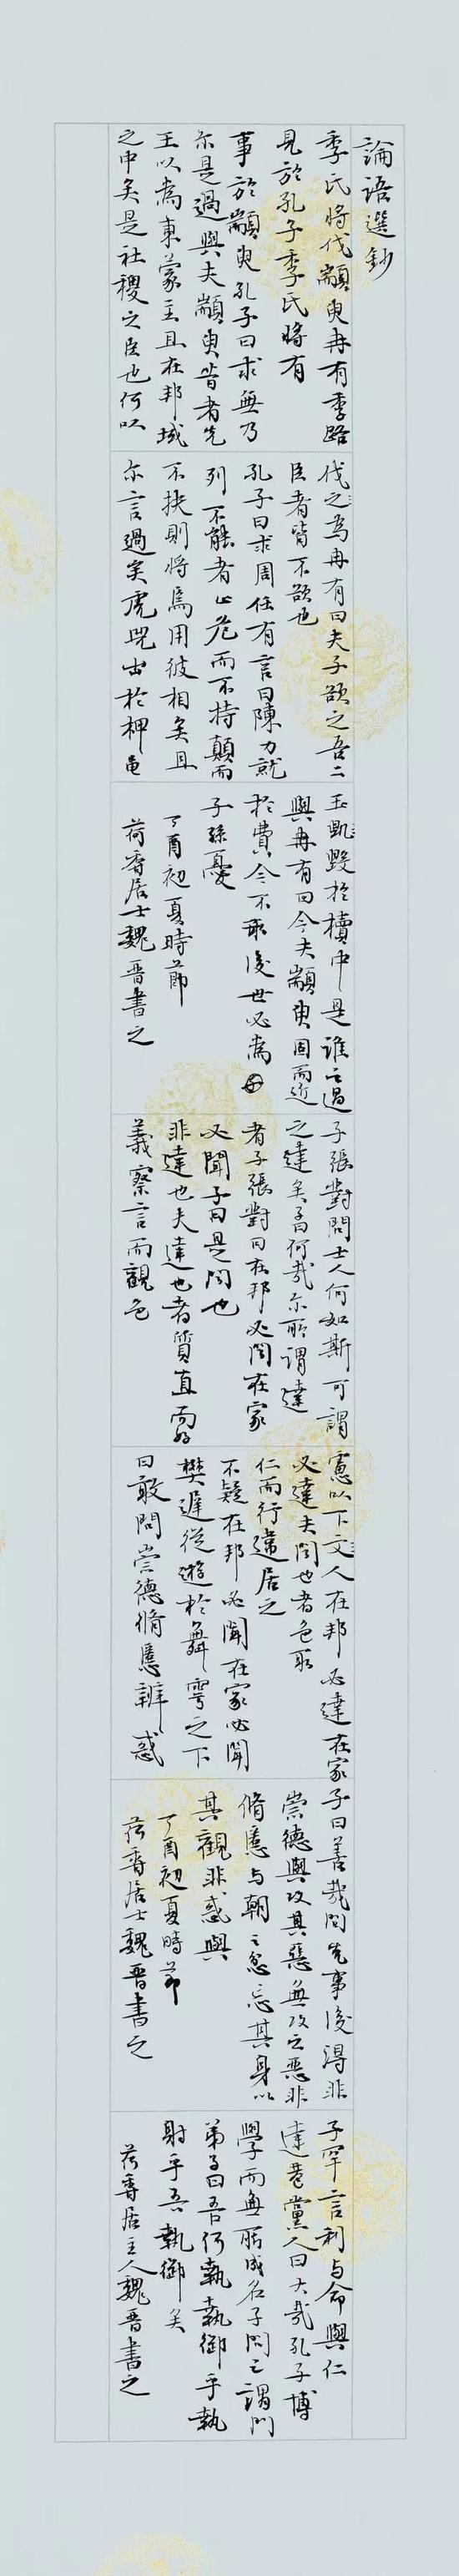 論語選鈔
季氏將伐顓臾冉有季路
見於孔子季氏將有
事於顓臾孔子曰求無乃
尔是過與夫顓臾昔者先
王以為東蒙主且在邦域
之中矣是社稷之臣也何以
伐之為冉有曰夫子欲之吾二
臣者皆不欲也
孔子曰求周任有言曰陳力就
列不能者止危而不持顛而
不扶則將焉用彼相矣且
尔言過矣虎兕出於柙龜
玉毀於櫝中是誰之過
與冉有曰今夫顓臾固而近
於費今不取後世必為
子孫憂
丁酉初夏時節
荷香居士魏晋書之
子張對問士人何如斯可謂
之達矣子曰何哉尔所謂達
者子張對曰在邦必聞在家
必聞子曰是聞也
非達也夫達也者質直而好
義察言而觀色
慮以下文人在邦必達在家
必達夫聞也者色取
仁而行違居之
不疑在邦必聞在家必聞
樊遲從遊於舞雩之下
曰敢問崇德脩慝辨惑
子曰善哉問先事後得非
崇德與攻其惡無攻之惡非
脩慝与朝之忿忘其身以
其觀非惑與
丁酉初夏時節
荷香居士魏晋書之
子罕言利与命與仁
達巷黨人曰大哉孔子博
學而無所成名子聞之謂門
弟子曰吾何執執御乎執
射乎吾執御矣
荷香居主人魏晋書之